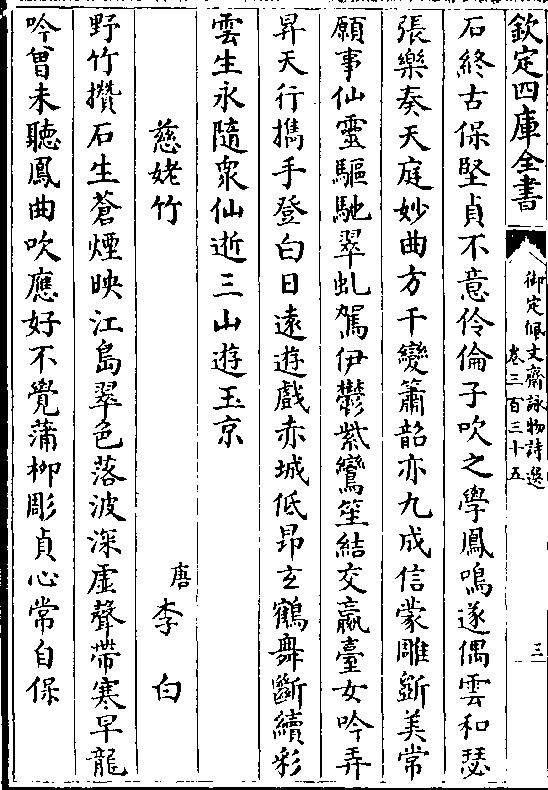 欽定四庫全書
御定佩文齋詠物詩選
卷三百三十五
三
石終古保堅貞不意伶倫子吹之學鳳鳴遂偶雲和瑟
張樂奏天庭妙曲方千變簫韶亦九成信蒙雕斵美常
願事仙靈驅馳翠虬駕伊鬱紫鸞笙結交嬴臺女吟弄
昇天行擕手登白日遠遊戲赤城低昂玄鶴舞斷續彩
雲生永隨衆仙逝三山遊玉京
慈姥竹
唐李白
野竹攢石生蒼煙映江島翠色落波深虛聲帶寒早龍
吟曾未聽鳳曲吹應好不覺蒲柳彫貞心常自保